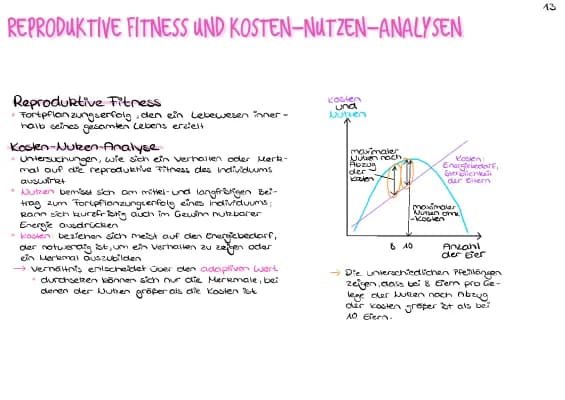 13
REPRODUKTIVE FITNESS UND KOSTEN-NUTZEN-ANALYSEN
Reproduktive Fitness
Fortpflanzungserfolg, den ein Lebewesen inner-
halb seines gesamten Lebens erzielt
Kosten-Nutzen-Analyse
Untersuchungen, wie sich ein Verhalten oder Merk-
mal auf die reproduktive Fitness des Individuums
auswirkt
Nutzen bemisst sich am mittel- und langfristigen Bei-
trag zum Fortpflanzungserfolg eines Individuums;
kann sich kurzfristig auch im Gewinn nutzbarer
Energie ausdrücken
Kosten beziehen sich meist auf den Energiebedarf,
der notwendig ist, um ein Verhalten zu zeigen oder
ein Merkmal auszubilden
→ Verhältnis entscheidet über den adaptiven Wert
durchsetzen können sich nur die Merkmale, bei
denen der Nutzen größer als die Kosten ist
Kosten
und
Nutzen
maximaler
Nutzen nach
Abzug
der
Kosten
Kosten:
Energiebedarf,
Sterblichkeit
der Eltern
maximaler
Nutzen ohne
-Kosten
8 10
Anzahl
der Eier
→ Die unterschiedlichen Pfeillängen
zeigen, dass bei 8 Eiern pro Ge-
lege der Nutzen nach Abzug
der Kosten größer ist als bei
10 Eiern.